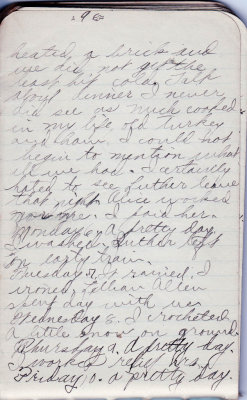 heated a brick and
we did not get the
least bit cold. Talk
about dinner I never
did see as much cooked
in my life old turkey
and ham. I could not
begin to mention what
all we had. I certainly
hated to see Luther leave
that night Alice worked
for me. I paid her.
Monday 6. A pretty day.
I washed. Luther left
on early train.
Tuesday 7. It rained. I
ironed. Lillian Allen
spent day with us.
Wednesday 8. I crocheted.
A little snow on ground.
Thursday 9. A pretty day.
I worked
Friday 10. a pretty day.